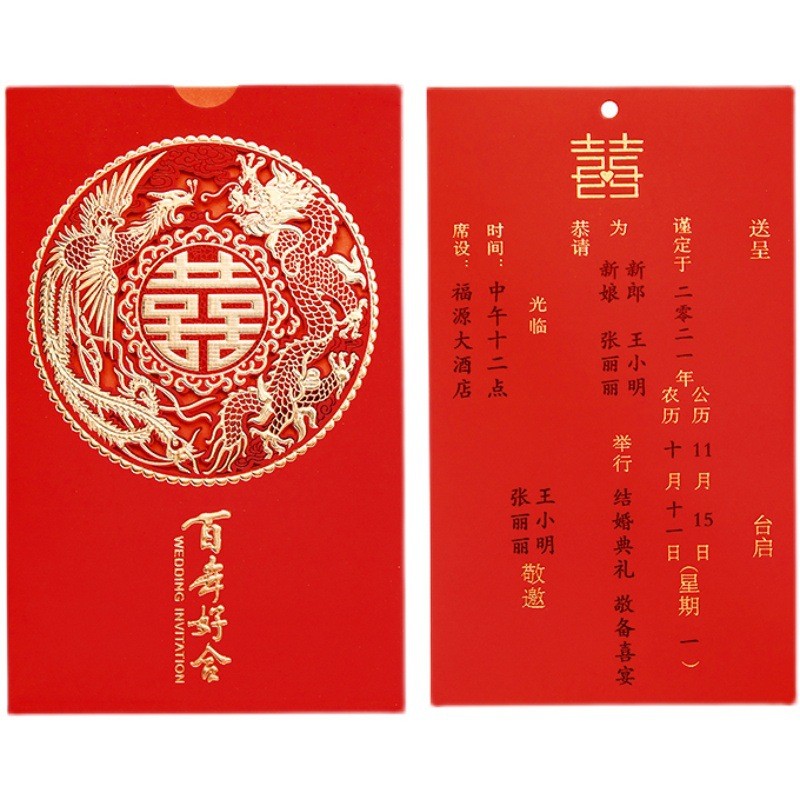 囍
百年好合
WEDDING INVITATION
囍
送呈
台启
谨定于 二零二一年
公历 11月15日
农历 十月十一日
(星期一)
为
新郎 王小明
新娘 张丽丽
举行 结婚典礼 敬备喜宴
恭请
光临
王小明
张丽丽
敬邀
时间：中午十二点
席设：福源大酒店